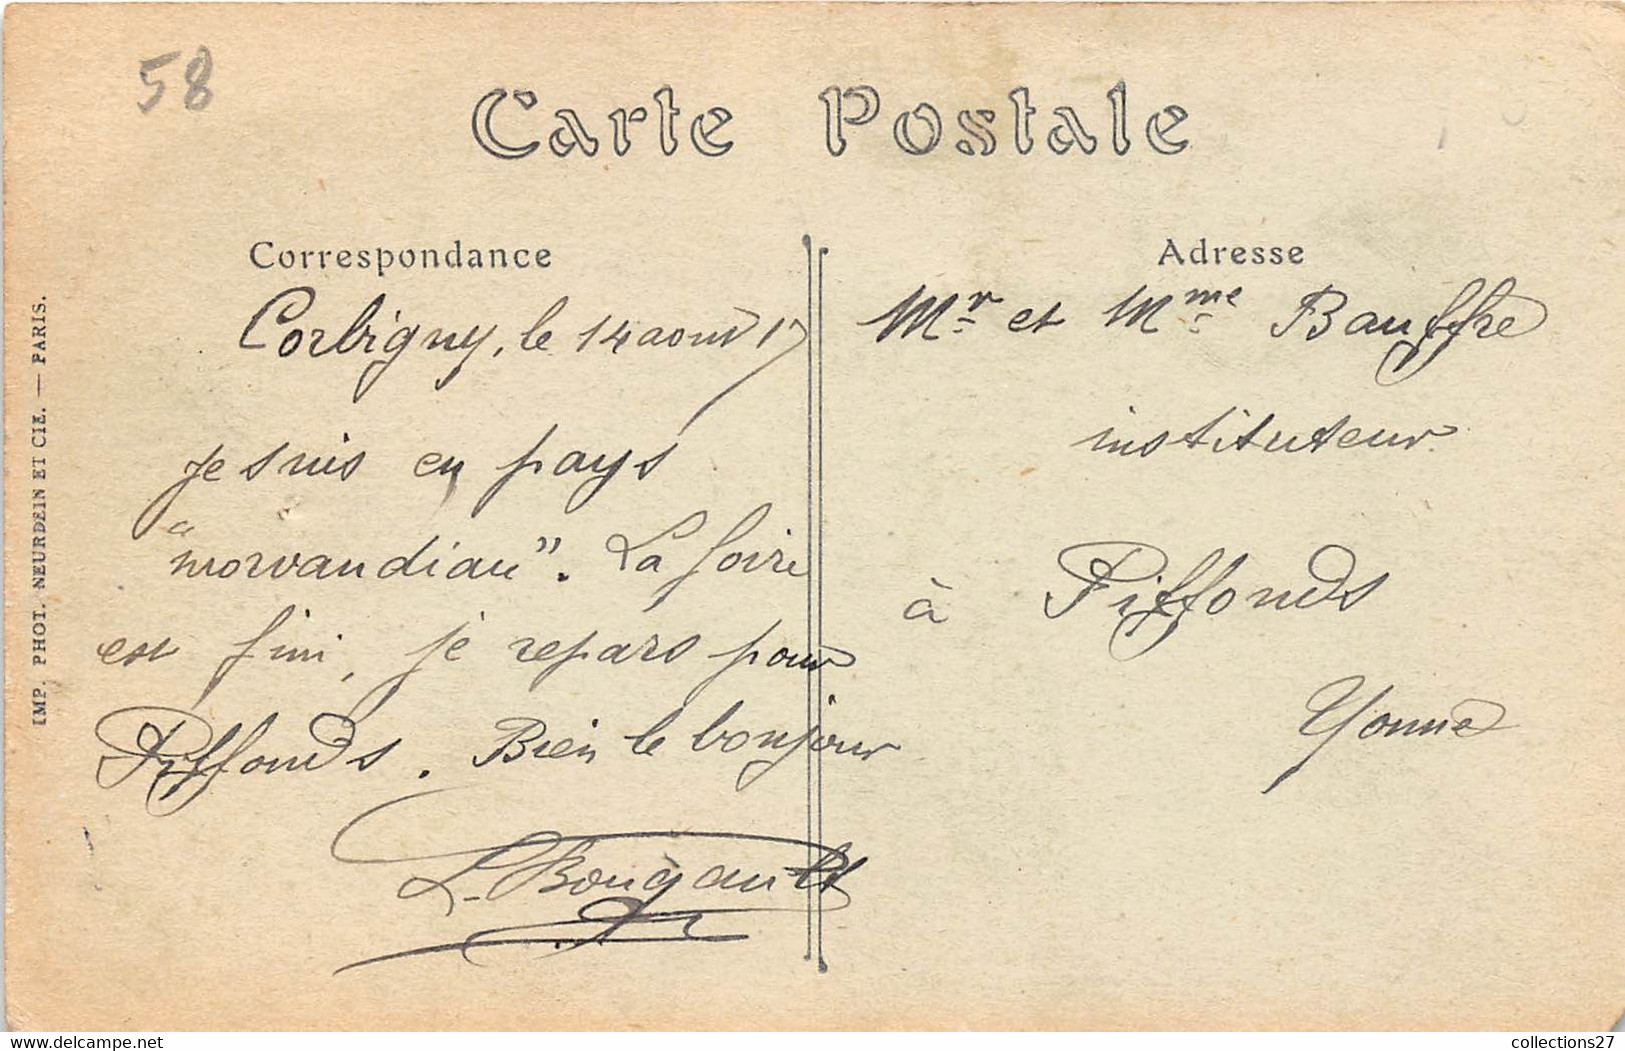 58
Carte Postale
Correspondance
Corbigny, le 14 aout 17
Je suis en pays
"morvandiau". La foire
est fini, je repars pour
Piffonds. Bien le bonjour
L. Bougault
Adresse
Mr et Mme Bauffre
instituteur
à Piffonds
Yonne
IMP. PHOT. NEURDEIN ET CIE. — PARIS.
collections27